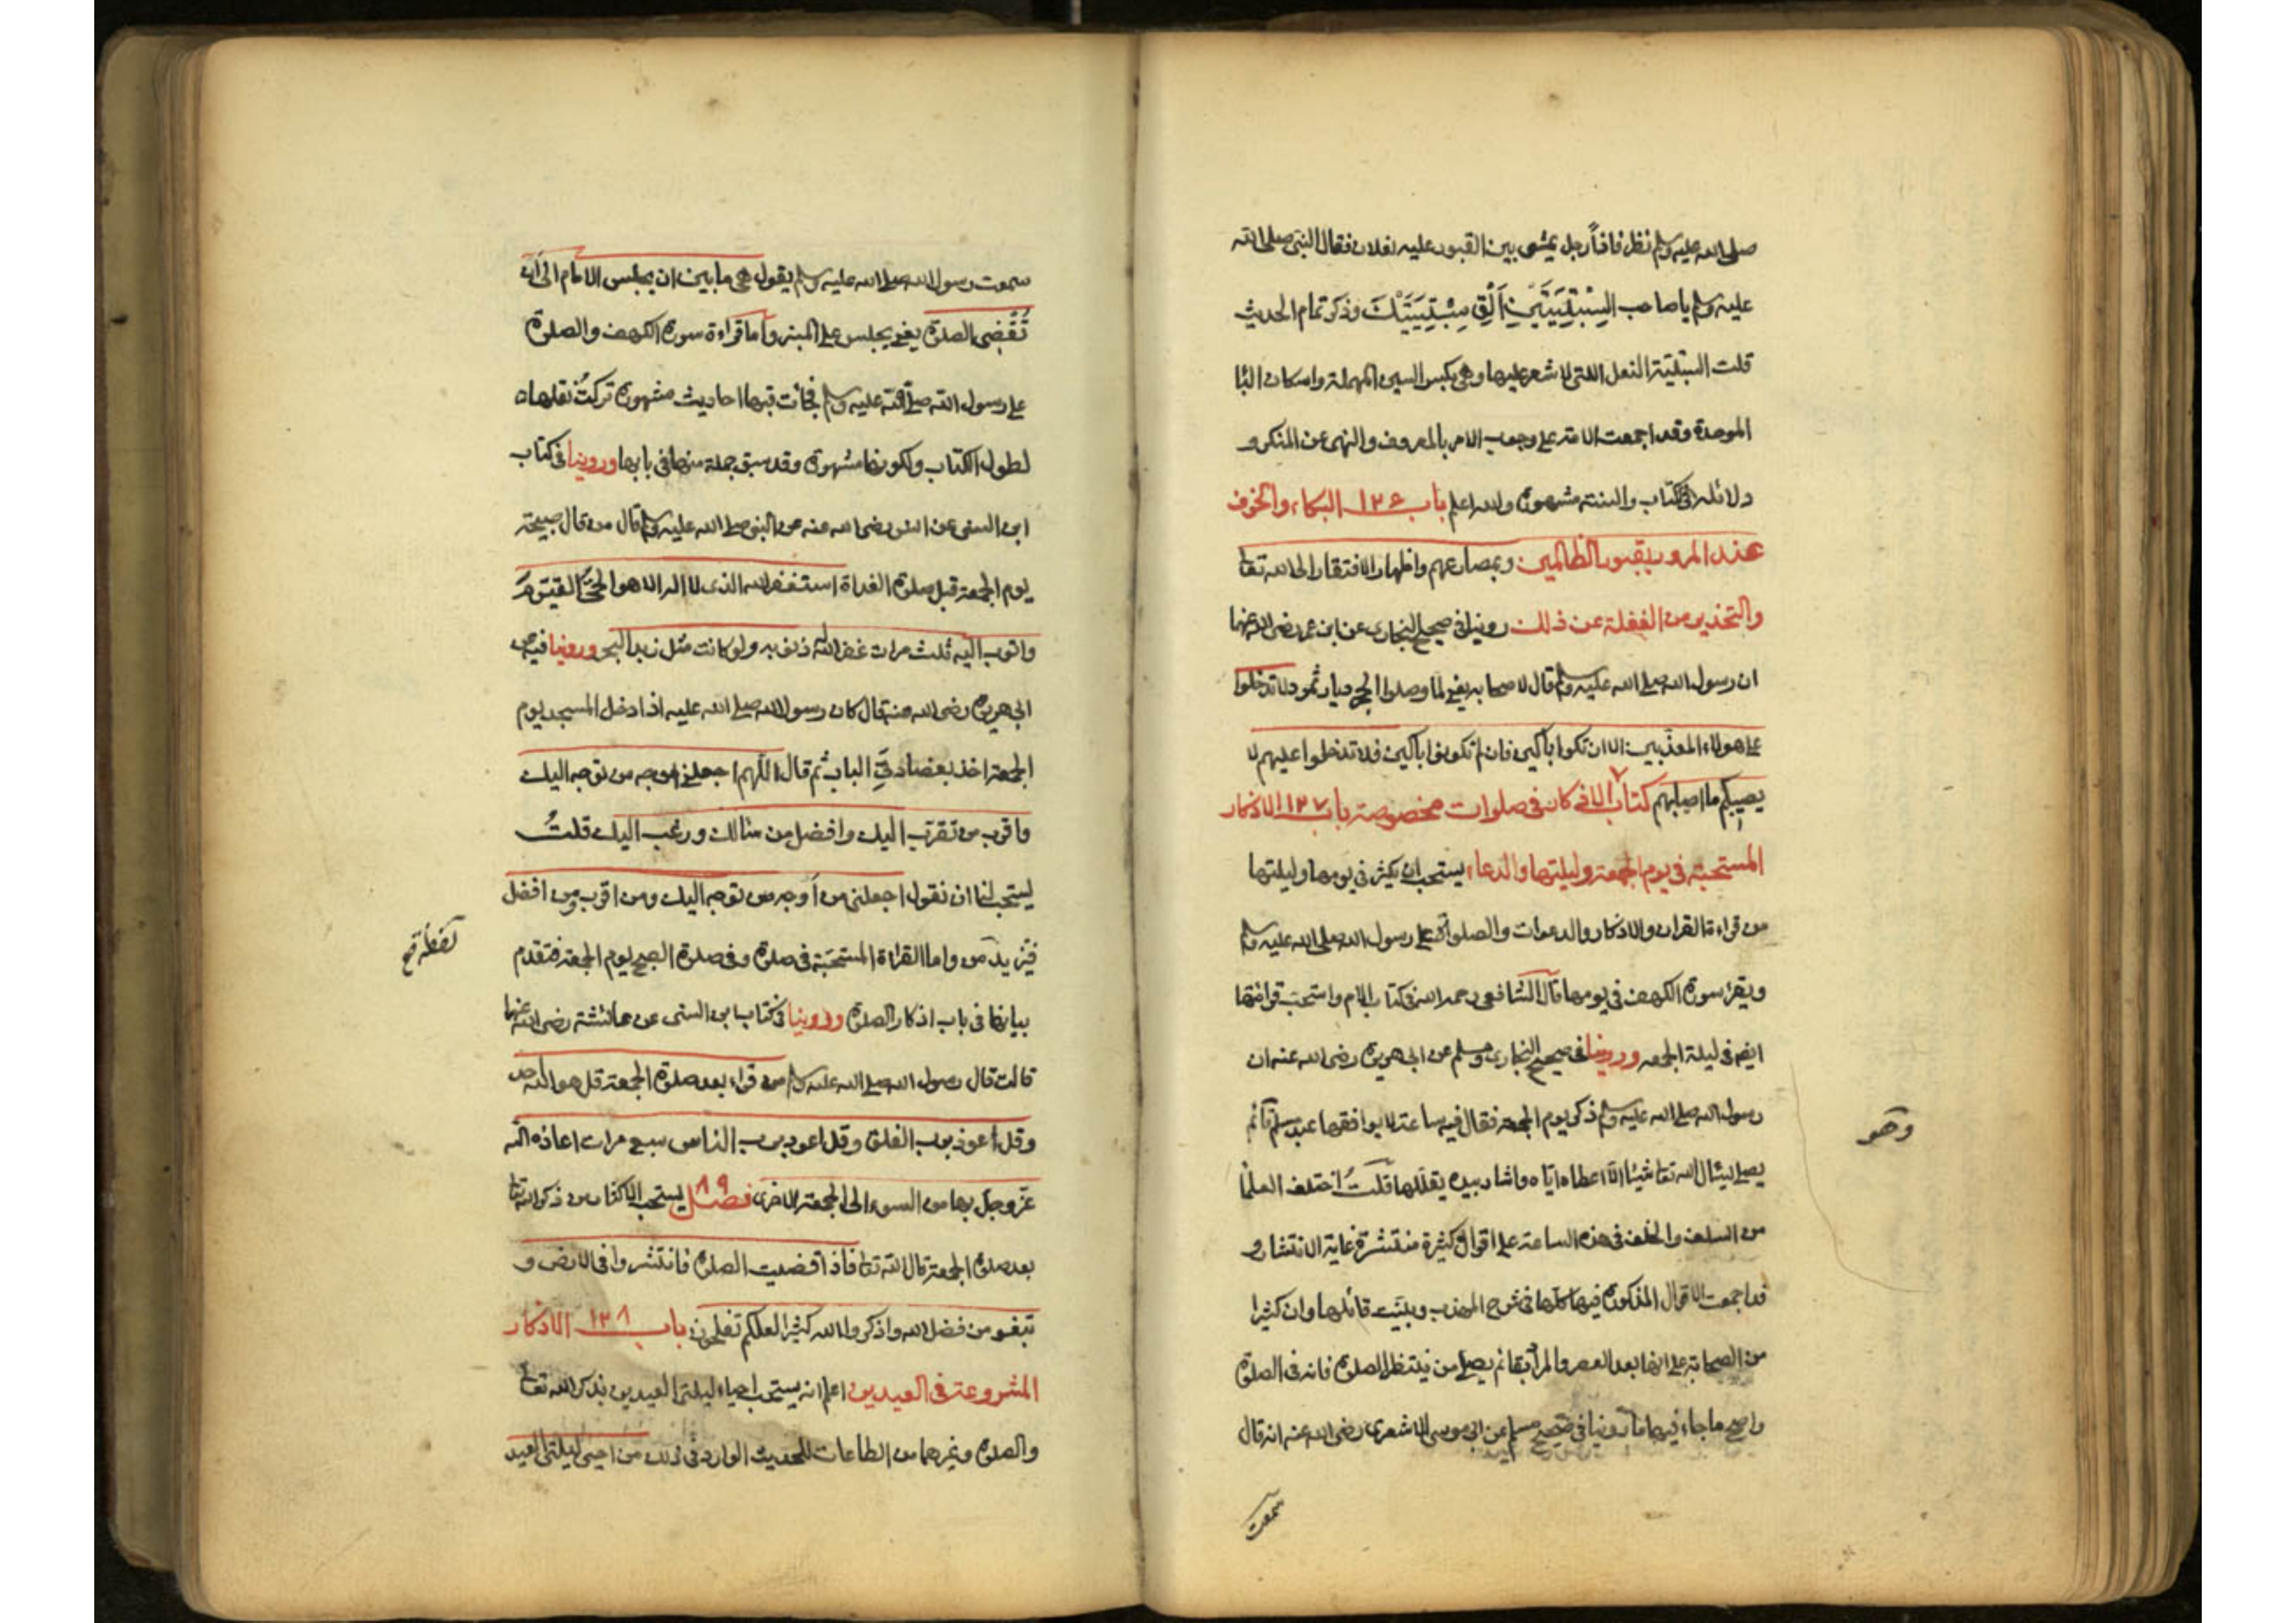 صلى الله عليه وسلم نظر فاذاً رجل يمشى بين القبور عليه نعلان فقال النبى صلى الله
عليه وسلم يا صاحب السِّبْتِيَّتَيْنِ اَلْقِ سِبْتِيَتَيْكَ وذكر تمام الحديث
قلت السبتية النعل التى لا شعر عليها وهى بكسر السين المهملة واسكان البا
الموحدة وقد اجمعت الامة على وجوب الامر بالمعروف والنهى عن المنكر و
دلائله فى الكتاب والسنة مشهورة والله اعلم باب ١٣٦ البكاء والخوف
عند المرور بقبور الظالمين وبمصارعهم واظهار الافتقار الى الله تعا
والتحذير من الغفلة عن ذلك روينا فى صحيح البخارى عن ابن عمر رضى الله عنهما
ان رسول الله صلى الله عليه وسلم قال لاصحابه يعنى لما وصلوا الحجر ديار ثمود لا تدخلوا
على هولاء المعذبين الا ان تكونوا باكين فان لم تكونوا باكين فلا تدخلوا عليهم لا
يصيبكم ما اصابهم كتاب الاذكار فى صلوات مخصوصة باب ١٣٧ الاذكار
المستحبة فى يوم الجمعة وليلتها والدعاء يستحب ان يكثر فى يومها وليلتها
من قراءة القران والاذكار والدعوات والصلوة على رسول الله صلى الله عليه وسلم
ويقرء سورة الكهف فى يومها قال الشافعى رحمه الله فى كتاب الام واستحب قرائتها
ايضا فى ليلة الجمعه وروينا فى صحيح البخارى ومسلم عن ابى هريرة رضى الله عنه ان
رسول الله صلى الله عليه وسلم ذكر يوم الجمعة فقال فيه ساعة لا يوافقها عبد مسلم قائم
وهو
يصلى يسئال الله تعا شيئا الا اعطاه اياه واشار بيده يقللها قلتُ اختلف العلما
من السلف والخلف فى هذه الساعة على اقوال كثيرة منتشرة غاية الانتشار و
قد اجمعت الاقوال المذكورة فيها كلها فى شرح المهذب وبينت قائلها وان كثيرا
من الصحابة على انها بعد العصر والمراد بقائم يصلى من ينتظر الصلوة فانه فى الصلوة
واصح ما جاء فيها ما روينا فى صحيح مسلم عن ابى موسى الاشعرى رضى الله عنه انه قال
سمعت
سمعت رسول الله صلى الله عليه وسلم يقول هى ما بين ان يجلس الامام الى ان
تُقْضى الصلوة يعنى يجلس على المنبر واما قراءة سورة الكهف والصلوة
على رسول الله صلى الله عليه وسلم فجائت فيها احاديث مشهورة تركتُ نقلها
لطول الكتاب ولكونها مشهورة وقد سبق جملة منها فى بابها وروينا فى كتاب
ابن السنى عن انس رضى الله عنه عن النبى صلى الله عليه وسلم قال من قال صبيحة
يوم الجمعة قبل صلوة الغداة استغفر الله الذى لا اله الا هو الحىَّ القيّومَ
واتوب اليه ثلث مرات غفر الله له ذنوبه ولو كانت مثل زبد البحر وروينا فيه عن
ابى هريرة رضى الله عنه قال كان رسول الله صلى الله عليه اذا دخل المسجد يوم
الجمعة اخذ بعضادتى الباب ثم قال اللهم اجعلنى اوجه من توجه اليك
واقرب من تقرب اليك وافضل من سالك ورغب اليك قلتُ
يستحب لنا ان نقول اجعلنى من اوجه من توجه اليك ومن اقرب ومن افضل
فنزيد من واما القراءة المستحبة فى صلوة وفى صلوة الصبح يوم الجمعة فتقدم
بيانها فى باب اذكار الصلوة وروينا فى كتاب ابن السنى عن عائشة رضى الله عنها
قالت قال رسول الله صلى الله عليه وسلم من قراء بعد صلوة الجمعة قل هو الله احد
وقل اعوذ برب الفلق وقل اعوذ برب الناس سبع مرات اعاذه الله
عزوجل بها من السوء الى الجمعة الاخرى فصل ٨٩ يستحب الاكثار من ذكر الله تعا
بعد صلوة الجمعة قال الله تعا فاذا قضيت الصلوة فانتشروا فى الارض و
بتغو من فضل الله واذكروا الله كثيرا لعلكم تفلحون باب ١٣٨ الاذكار
المشروعة فى العيدين اعلم انه يستحب احياء ليلتى العيدين بذكر الله تعا
والصلوة وغيرهما من الطاعات للحديث الوارد فى ذلك من احيى ليلتى العيد